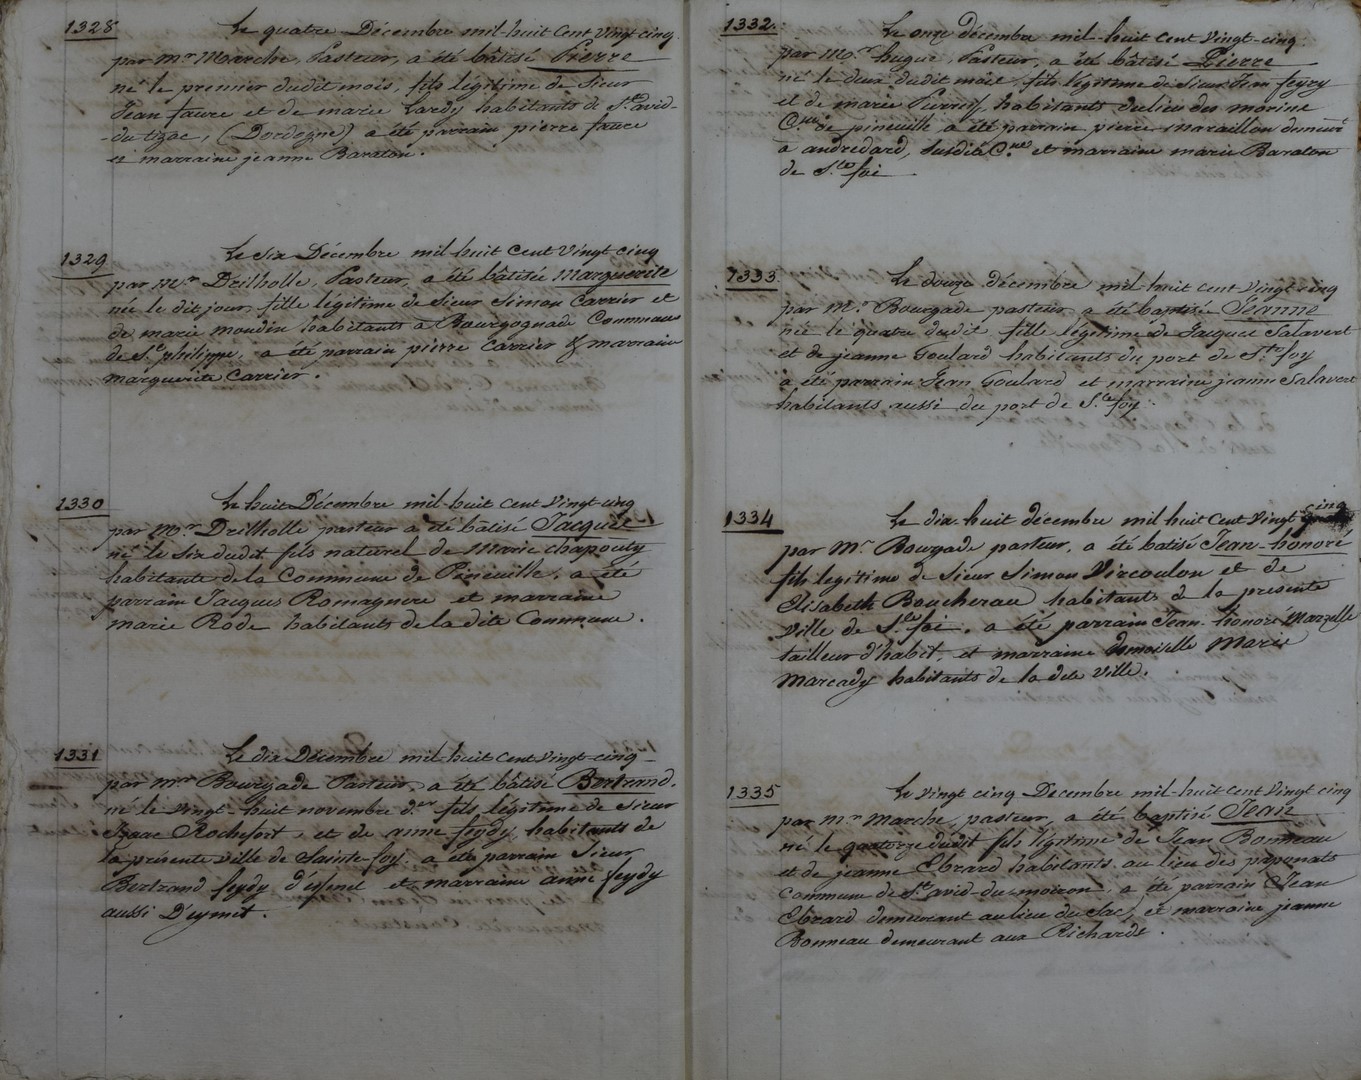 1328
Le quatre Décembre mil-huit Cent Vingt-cinq.
par mr Marche, Pasteur, a été bâtisé Pierre
né le premier dudit mois, fils légitime de Sieur
Jean faure et de marie Lardy habitants de St. avid-
-du-tizac, (Dordogne) a été parrain pierre faure
et marraine jeanne Baraton.
1329
Le Six Décembre mil-huit Cent Vingt-cinq
par Mr. Drilholle, Pasteur, a été bâtisée Marguerite
née le dit jour, fille légitime de Sieur Simon Carrier et
de marie moudin habitants à Bourgognade Commune
de St. philippe, a été parrain pierre Carrier & marraine
marguerite Carrier.
1330
Le huit Décembre mil-huit Cent Vingt-cinq
par Mr. Drilholle pasteur a été bâtisé Jacques
né le six dudit fils naturel de Marie chapouly
habitante de la Commune de Pineuille, a été
parrain Jacques Romaguere et marraine
marie Rode habitants de la dite Commune.
1331
Le dix Décembre mil-huit Cent Vingt-cinq-
par Mr. Bourgade Pasteur, a été bâtisé Bertrand,
né le Vingt-huit novembre d.er fils légitime de Sieur
Isaac Rochefort, et de anne feydy, habitants de
la présente ville de Sainte-foy. a été parrain Sieur
Bertrand feydy et marraine anne feydy
aussi D'eymet.
1332.
Le onze décembre mil-huit Cent Vingt-cinq.
par Mr. hugue, Pasteur, a été bâtisé Pierre
né le deux dudit mois, fils légitime de Sieur Jean feyry
et de marie habitants du lieu des morine
Cne de pineuille a été parrain pierre maraillon demeurt
à andrédard, susdite C.ne et marraine marie Baraton
de S.te foi
1333.
Le douze décembre mil-huit cent vingt-cinq
par M.r Bourgade pasteur a été baptisée Jeanne
née le quatre dudit fille légitime de Jacques Salavert
et de jeanne Goulard habitants du port de S.te foy
a été parrain Jean Goulard et marraine jeanne Salavert
habitants aussi du port de S.te foy.
1334
Le dix huit décembre mil huit Cent Vingt cinq
par Mr Bourgade pasteur, a été batisé Jean-honoré
fils legitime de Sieur Simon Vircoulon et de
Elisabeth Boucherau habitants à la présente
Ville de S.te foi. a été parrain Jean-honoré Marzelle
tailleur d'habit, et marraine demoiselle Marie
Marcady habitants de la dite Ville.
1335
Le Vingt cinq Décembre mil-huit Cent Vingt cinq
par mr Marche, pasteur, a été baptisé Jean
né le quatorze dudit fils légitime de Jean Bonneau
et de jeanne Ebrard habitants au lieu des paponats
commune de St. avid-du-moiron, a été parrain Jean
Ebrard demeurant au lieu du Sac, et marraine jeanne
Bonneau demeurant aux Richards.